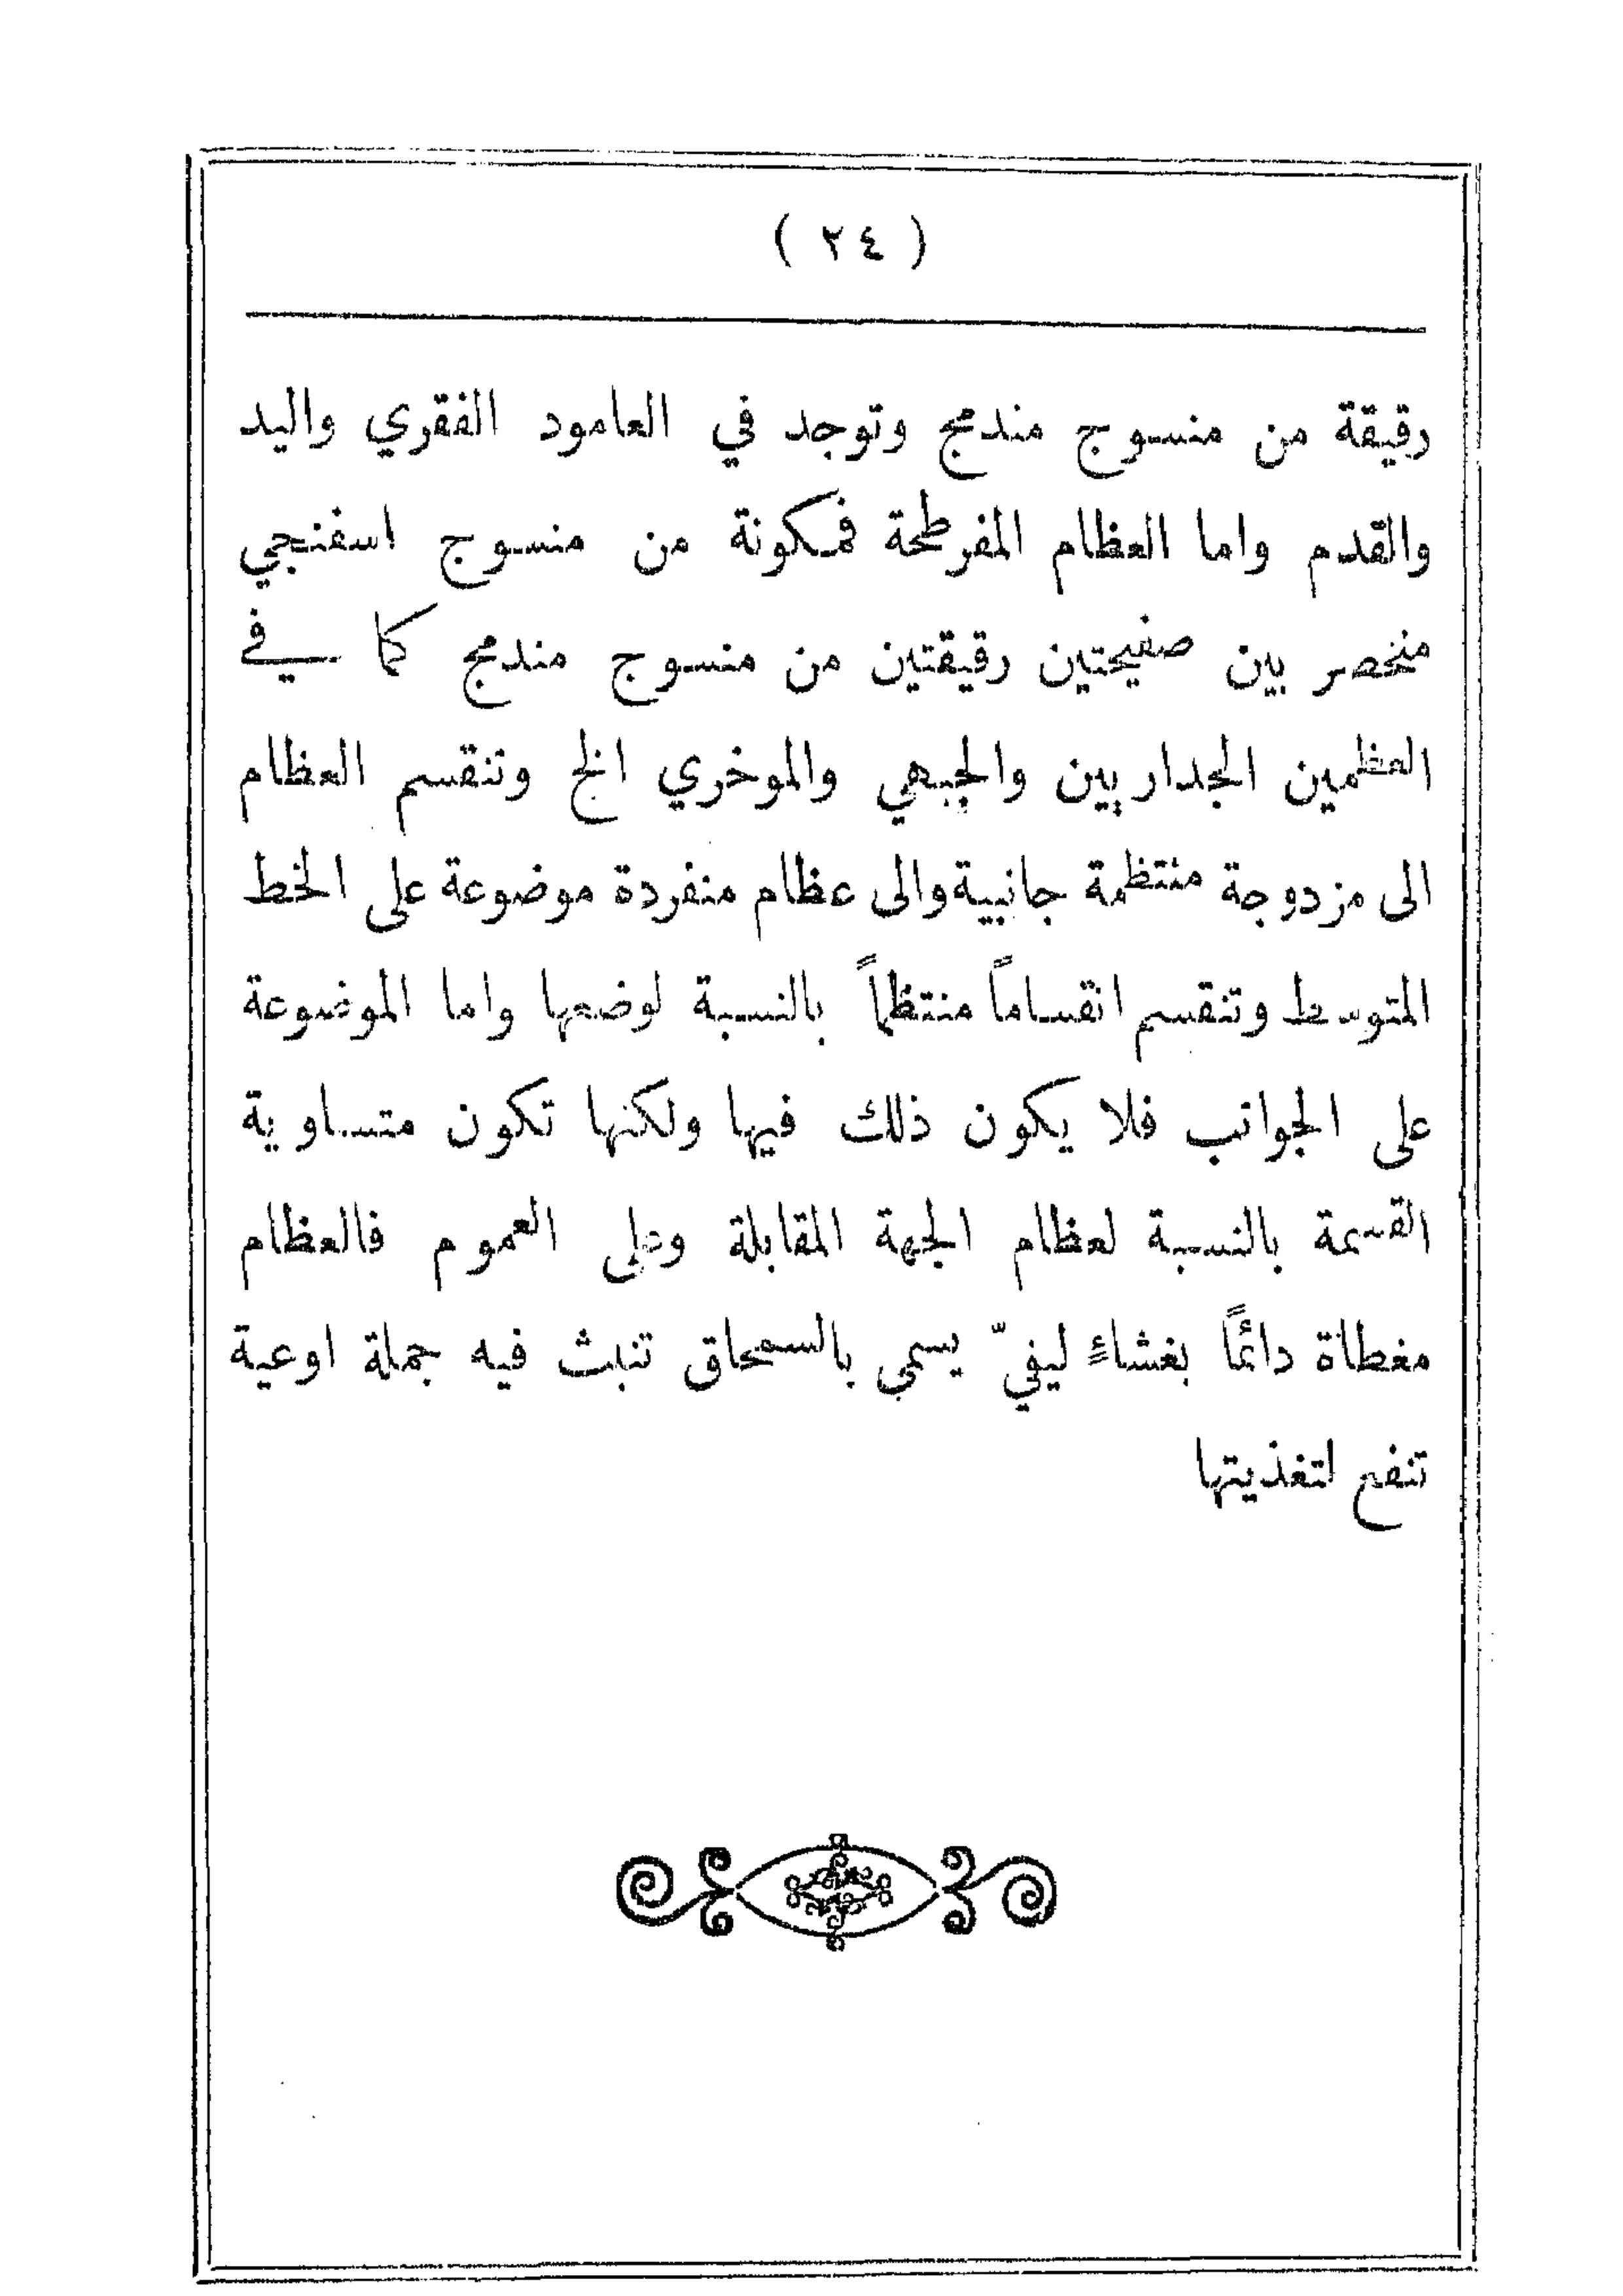 ( ٢٤ )
رقيقة من منسوج مندمج وتوجد في العامود الفقري واليد
والقدم واما العظام المفرطحة فمكونة من منسوج اسفنجي
منحصر بين صفيحتين رقيقتين من منسوج مندمج كما في
العظمين الجداربين والجبهي والموخري الخ وتنقسم العظام
الى مزدوجة منتظمة جانبية والى عظام منفردة موضوعة على الخط
المتوسط وتنقسم انقساماً منتظماً بالنسبة لوضعها واما الموضوعة
على الجوانب فلا يكون ذلك فيها ولكنها تكون متساوية
القسمة بالنسبة لعظام الجهة المقابلة وعلى العموم فالعظام
مغطاة دائمًا بغشاءٍ ليفيّ يسمى بالسمحاق تنبث فيه جملة اوعية
تنفع لتغذيتها